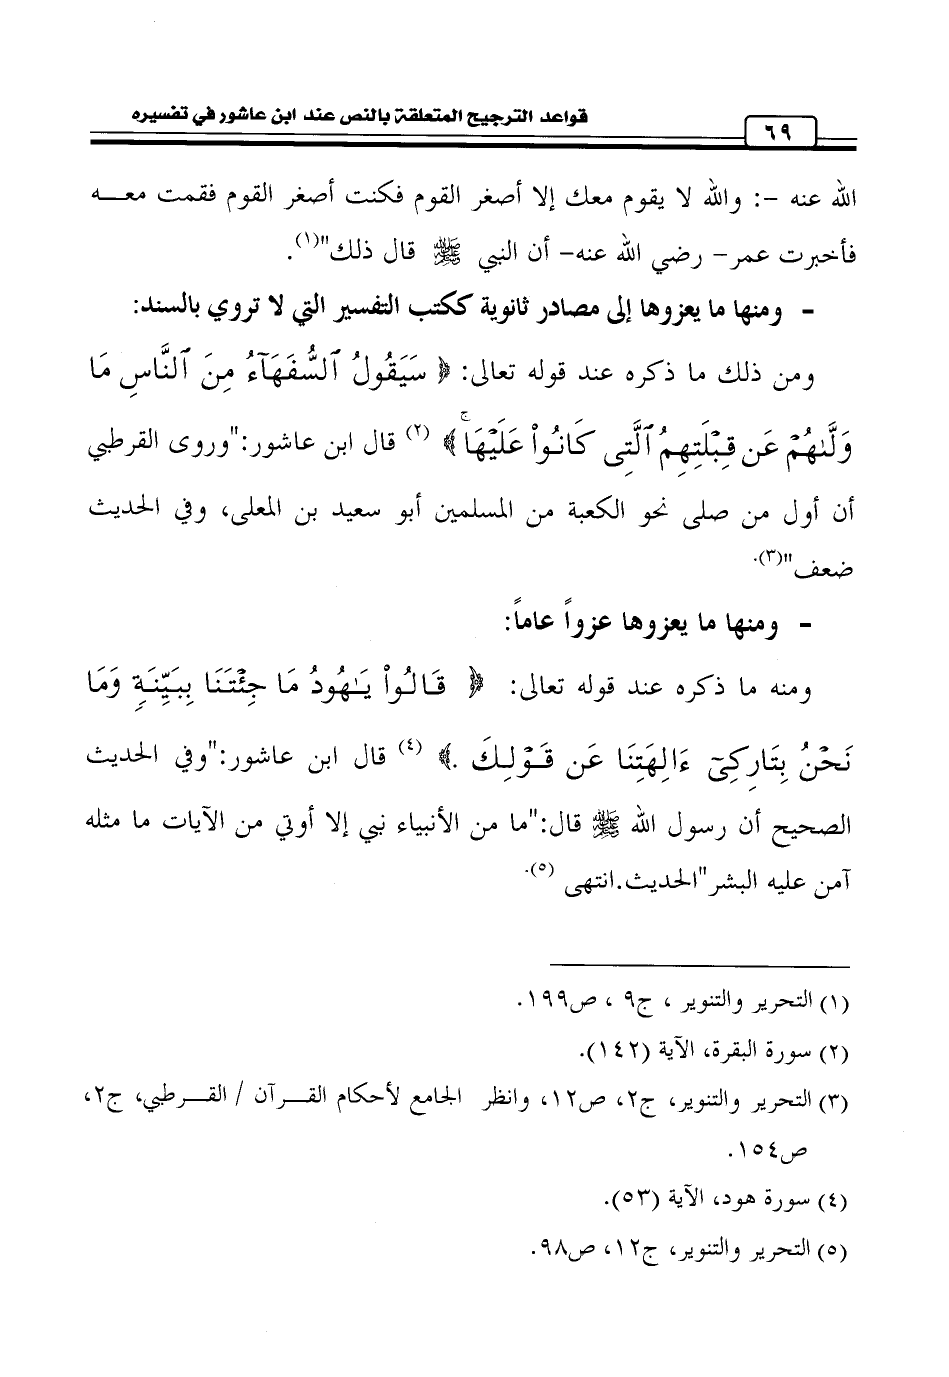 قواعد الترجيح المتعلقة بالنص عند ابن عاشور في تفسيره
٦٩
الله عنه -: والله لا يقوم معك إلا أصغر القوم فكنت أصغر القوم فقمت معـــه
فأخبرت عمر- رضي الله عنه- أن النبي ﷺ قال ذلك"(١).
- ومنها ما يعزوها إلى مصادر ثانوية ككتب التفسير التي لا تروي بالسند:
ومن ذلك ما ذكره عند قوله تعالى: ﴿ سَيَقُولُ ٱلسُّفَهَآءُ مِنَ ٱلنَّاسِ مَا
وَلَّىٰهُمْ عَن قِبْلَتِهِمُ ٱلَّتِى كَانُوا۟ عَلَيْهَا ۚ ﴾ (٢) قال ابن عاشور:"وروى القرطبي
أن أول من صلى نحو الكعبة من المسلمين أبو سعيد بن المعلى، وفي الحديث
ضعف"(٣).
- ومنها ما يعزوها عزواً عاماً:
ومنه ما ذكره عند قوله تعالى: ﴿ قَالُوا۟ يَـٰهُودُ مَا جِئْتَنَا بِبَيِّنَةٍ وَمَا
نَحْنُ بِتَارِكِىٓ ءَالِهَتِنَا عَن قَوْلِكَ .﴾ (٤) قال ابن عاشور:"وفي الحديث
الصحيح أن رسول الله ﷺ قال:"ما من الأنبياء نبي إلا أوتي من الآيات ما مثله
آمن عليه البشر"الحديث.انتهى (٥).
(١) التحرير والتنوير ، ج٩ ، ص١٩٩.
(٢) سورة البقرة، الآية (١٤٢).
(٣) التحرير والتنوير، ج٢، ص١٢، وانظر الجامع لأحكام القـــرآن / القـــرطبي، ج٢،
ص١٥٤.
(٤) سورة هود، الآية (٥٣).
(٥) التحرير والتنوير، ج١٢، ص٩٨.